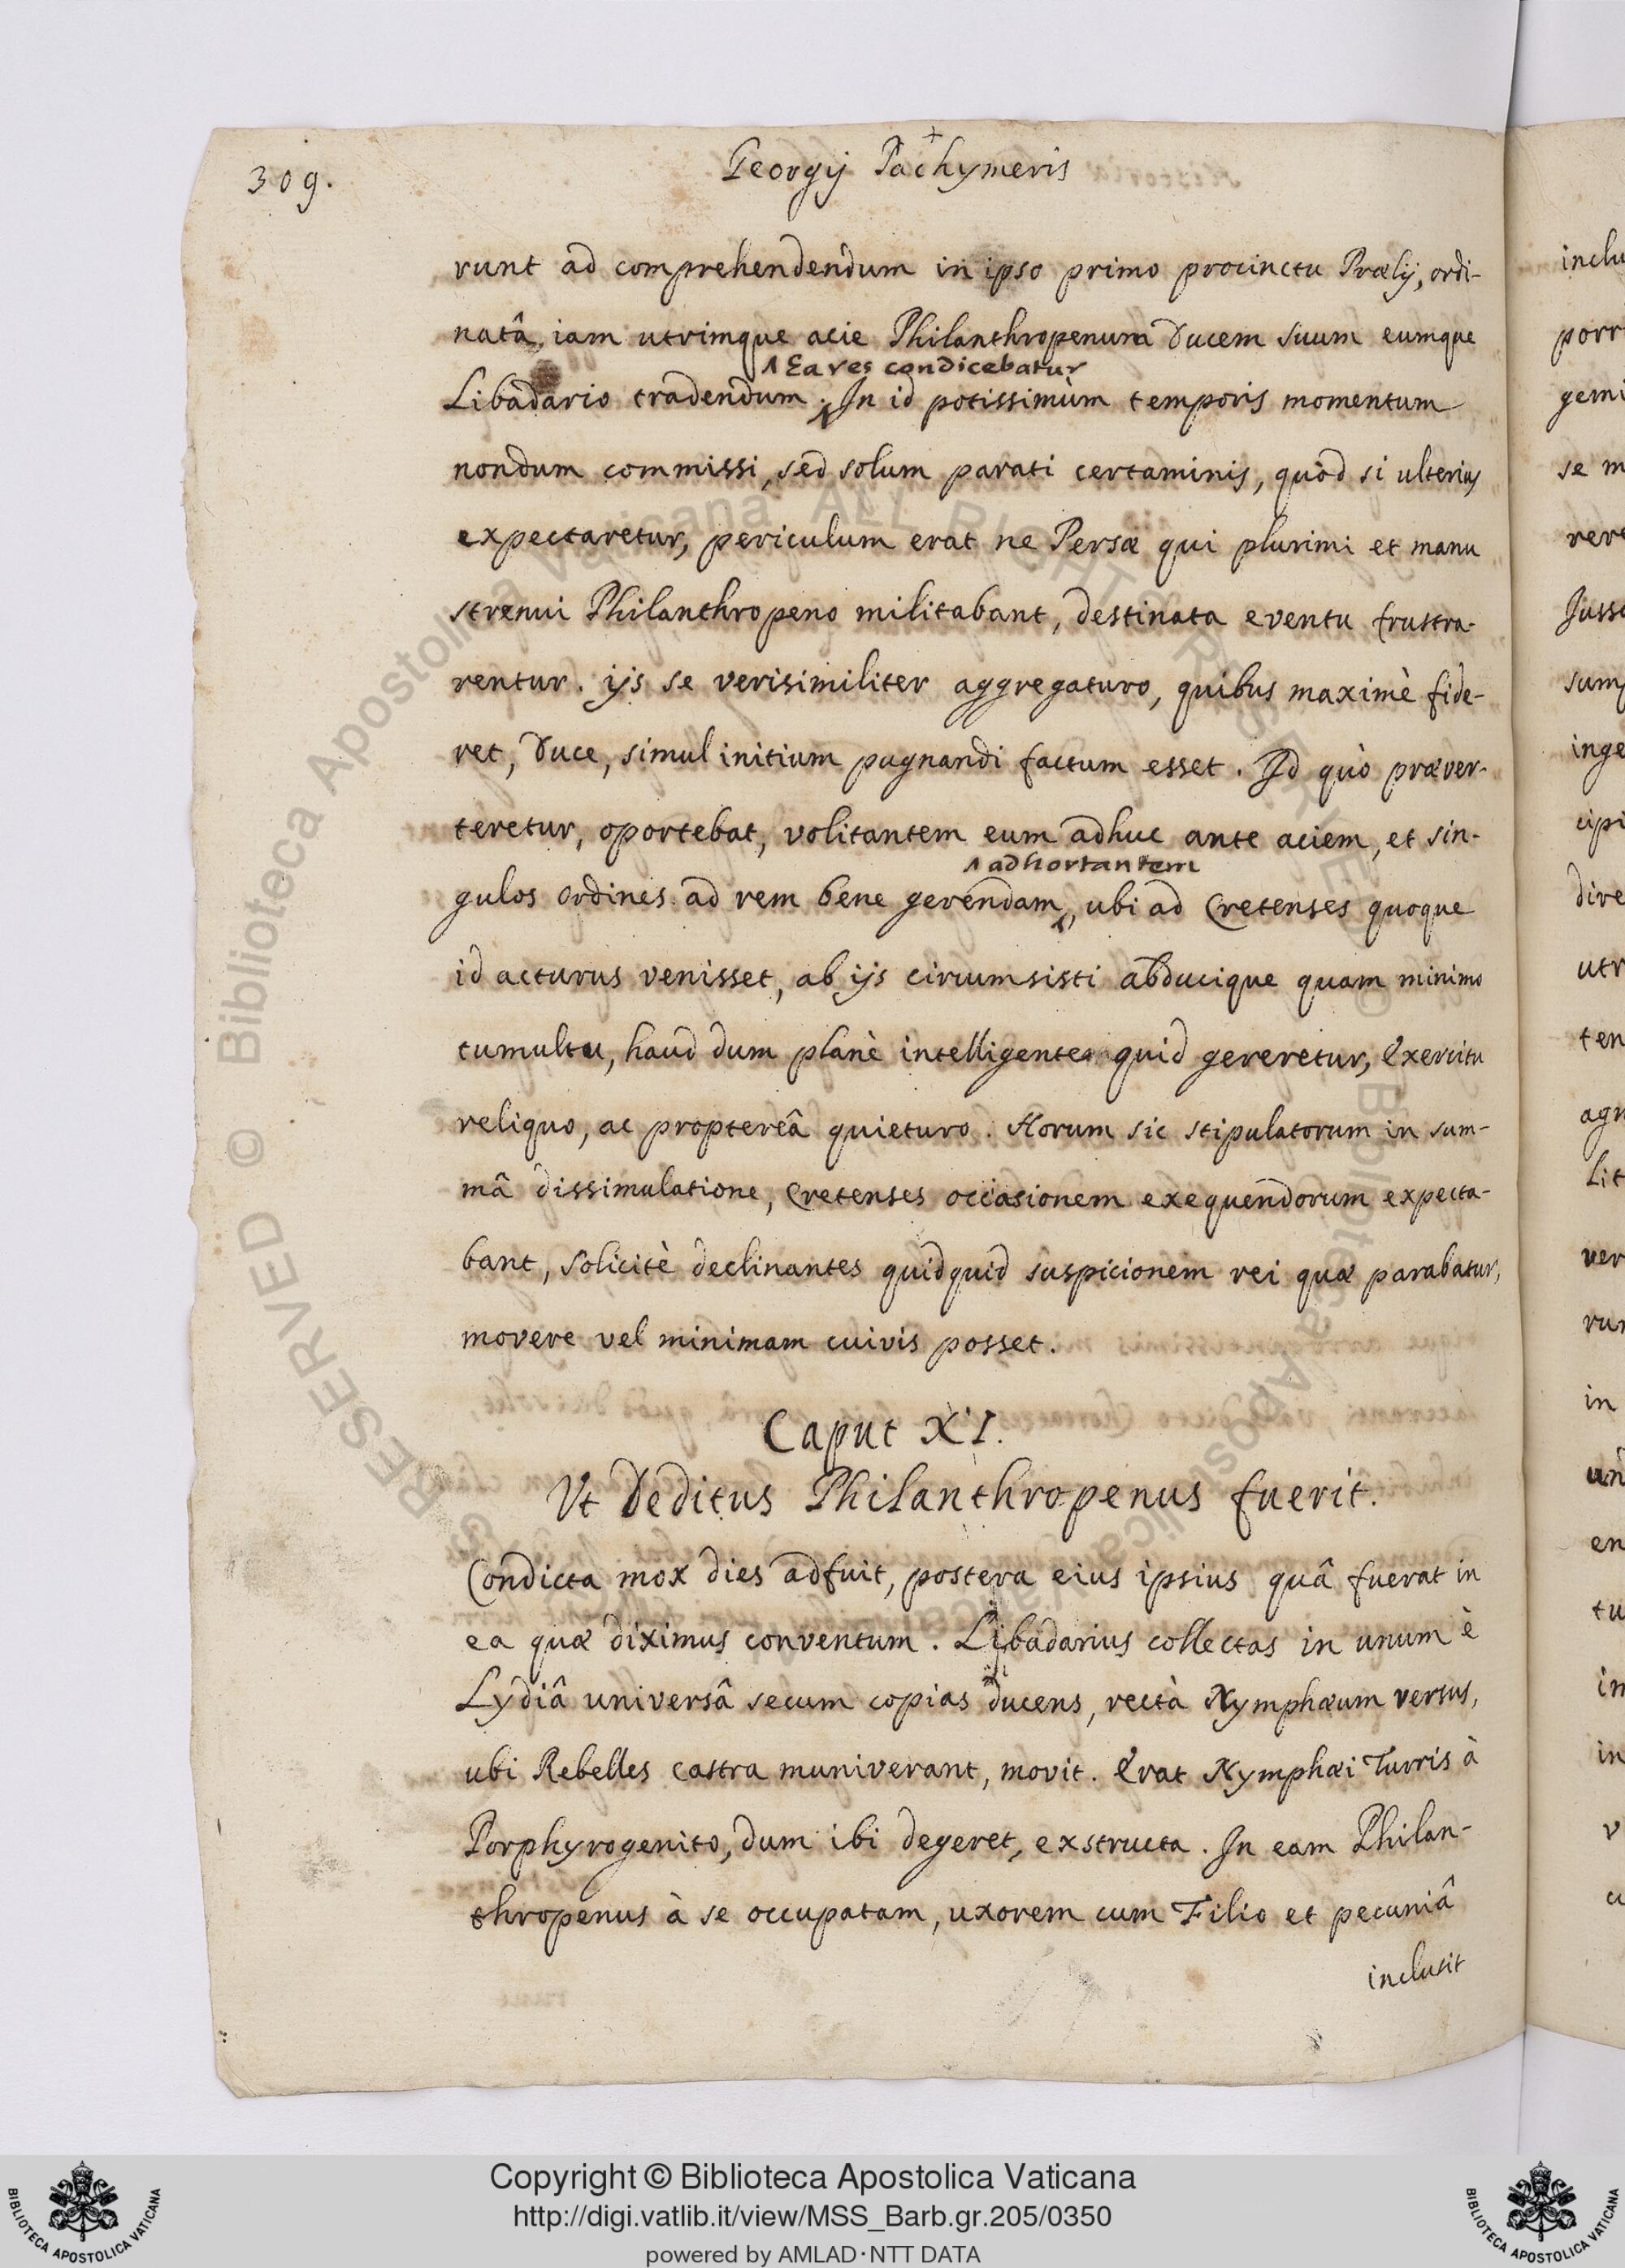 309.
Georgij Pachymeris
runt ad comprehendendum in ipso primo procinctu Prælij, ordi-
natâ iam utrimque acie Philanthropenum Ducem suum eumque
Ea res condicebatur
Libadario tradendum. In id potissimùm temporis momentum
nondum commissi, sed solum parati certaminis, quòd si ulterius
expectaretur, periculum erat ne Persæ qui plurimi et manu
strenui Philanthropeno militabant, destinata eventu frustra-
rentur. ijs se verisimiliter aggregaturo, quibus maximè fide-
ret, Duce, simul initium pugnandi factum esset. Id quò præver-
teretur, oportebat, volitantem eum adhuc ante aciem, et sin-
adhortantem
gulos ordines ad rem bene gerendam, ubi ad Cretenses quoque
id acturus venisset, ab ijs circumsisti abducique quam minimo
tumultu, haud dum planè intelligente quid gereretur, Exercitu
reliquo, ac proptereâ quieturo. Horum sic stipulatorum in sum-
mâ dissimulatione, Cretenses occasionem exequendorum expecta-
bant, solicitè declinantes quidquid suspicionem rei quæ parabatur,
movere vel minimam cuivis posset.
Caput XI.
Vt Deditus Philanthropenus fuerit.
Condicta mox dies adfuit, postera eius ipsius quâ fuerat in
ea quæ diximus conventum. Libadarius collectas in unum è
Lydiâ universâ secum copias ducens, rectà Nymphæum versus,
ubi Rebelles castra muniverant, movit. Erat Nymphæi Turris à
Porphyrogenito, dum ibi degeret, exstructa. In eam Philan-
thropenus à se occupatam, uxorem cum Filio et pecuniâ
inclusit
inclu
porr
gemi
se m
rere
Jusso
sump
inge
cipi
dire
utr
ten
agn
Lit
ver
rur
in
un
en
tu
in
in
v
cu
© Biblioteca Apostolica Vaticana ALL RIGHTS RESERVED © Biblioteca Apostolica Vaticana ALL RIGHTS RESERVED
Copyright © Biblioteca Apostolica Vaticana
http://digi.vatlib.it/view/MSS_Barb.gr.205/0350
powered by AMLAD·NTT DATA
BIBLIOTECA APOSTOLICA VATICANA
BIBLIOTECA APOSTOLICA VATICANA